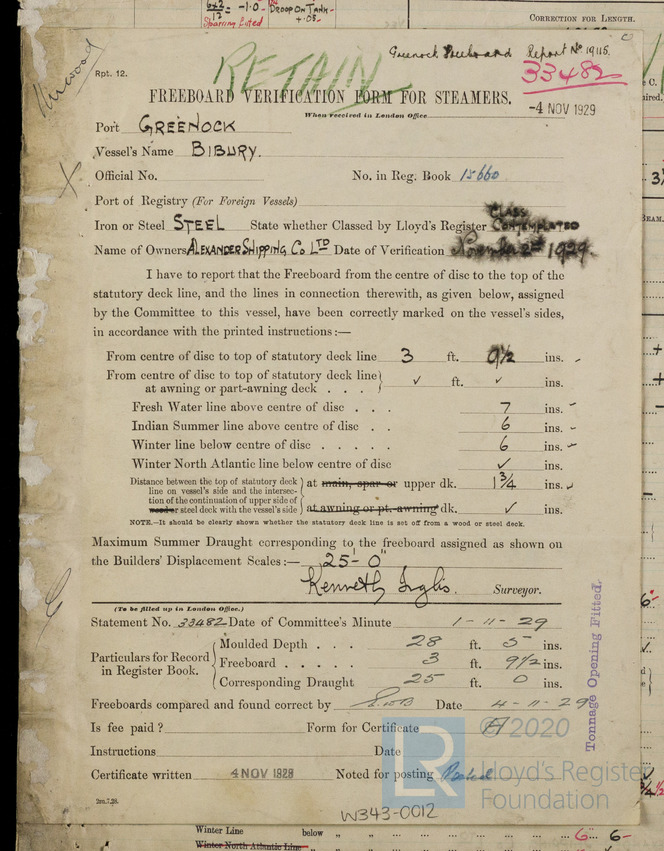 6x2/12 = -1.0
Sparring fitted
DROOP ON TANK
+.05-
CORRECTION FOR LENGTH.
Rpt. 12.
RETAIN
Greenock Freeboard Report No 19115.
33482
FREEBOARD VERIFICATION FORM FOR STEAMERS.
When received in London Office
-4 NOV 1929
Port GREENOCK
Vessel's Name BIBURY.
Official No. No. in Reg. Book 15660
Port of Registry (For Foreign Vessels)
Iron or Steel STEEL State whether Classed by Lloyd's Register CLASS CONTEMPLATED
Name of Owners ALEXANDER SHIPPING Co LTD Date of Verification November 2nd 1929.
I have to report that the Freeboard from the centre of disc to the top of the
statutory deck line, and the lines in connection therewith, as given below, assigned
by the Committee to this vessel, have been correctly marked on the vessel's sides,
in accordance with the printed instructions :—
From centre of disc to top of statutory deck line 3 ft. 9½ ins.
From centre of disc to top of statutory deck line
at awning or part-awning deck . . . ✓ ft. ✓ ins.
Fresh Water line above centre of disc . . . 7 ins.
Indian Summer line above centre of disc . . 6 ins.
Winter line below centre of disc . . . . . 6 ins.
Winter North Atlantic line below centre of disc ✓ ins.
Distance between the top of statutory deck
line on vessel's side and the intersec-
tion of the continuation of upper side of
wood or steel deck with the vessel's side
at main, spar or upper dk. 1¾ ins.
at awning or pt.-awning dk. ✓ ins.
NOTE.—It should be clearly shown whether the statutory deck line is set off from a wood or steel deck.
Maximum Summer Draught corresponding to the freeboard assigned as shown on
the Builders' Displacement Scales :— 25'-0"
Kenneth Inglis. Surveyor.
(To be filled up in London Office.)
Statement No. 33482 Date of Committee's Minute 1-11-29
Particulars for Record
in Register Book.
Moulded Depth . . . 28 ft. 5 ins.
Freeboard . . . . . 3 ft. 9½ ins.
Corresponding Draught 25 ft. 0 ins.
Freeboards compared and found correct by Date 4-11-29
Is fee paid ? Form for Certificate
Instructions Date
Certificate written 4 NOV 1929 Noted for posting Posted
2m.7.28.
Tonnage Opening Fitted.
LR
© 2020
Lloyd's Register
Foundation
W343-0012
Winter Line below 6 6-
Winter North Atlantic Line